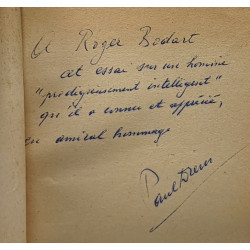 A Roger Bodart
cet essai sur un homme
"prodigieusement intelligent"
qu'il a connu et apprécié,
en amical hommage
Paul